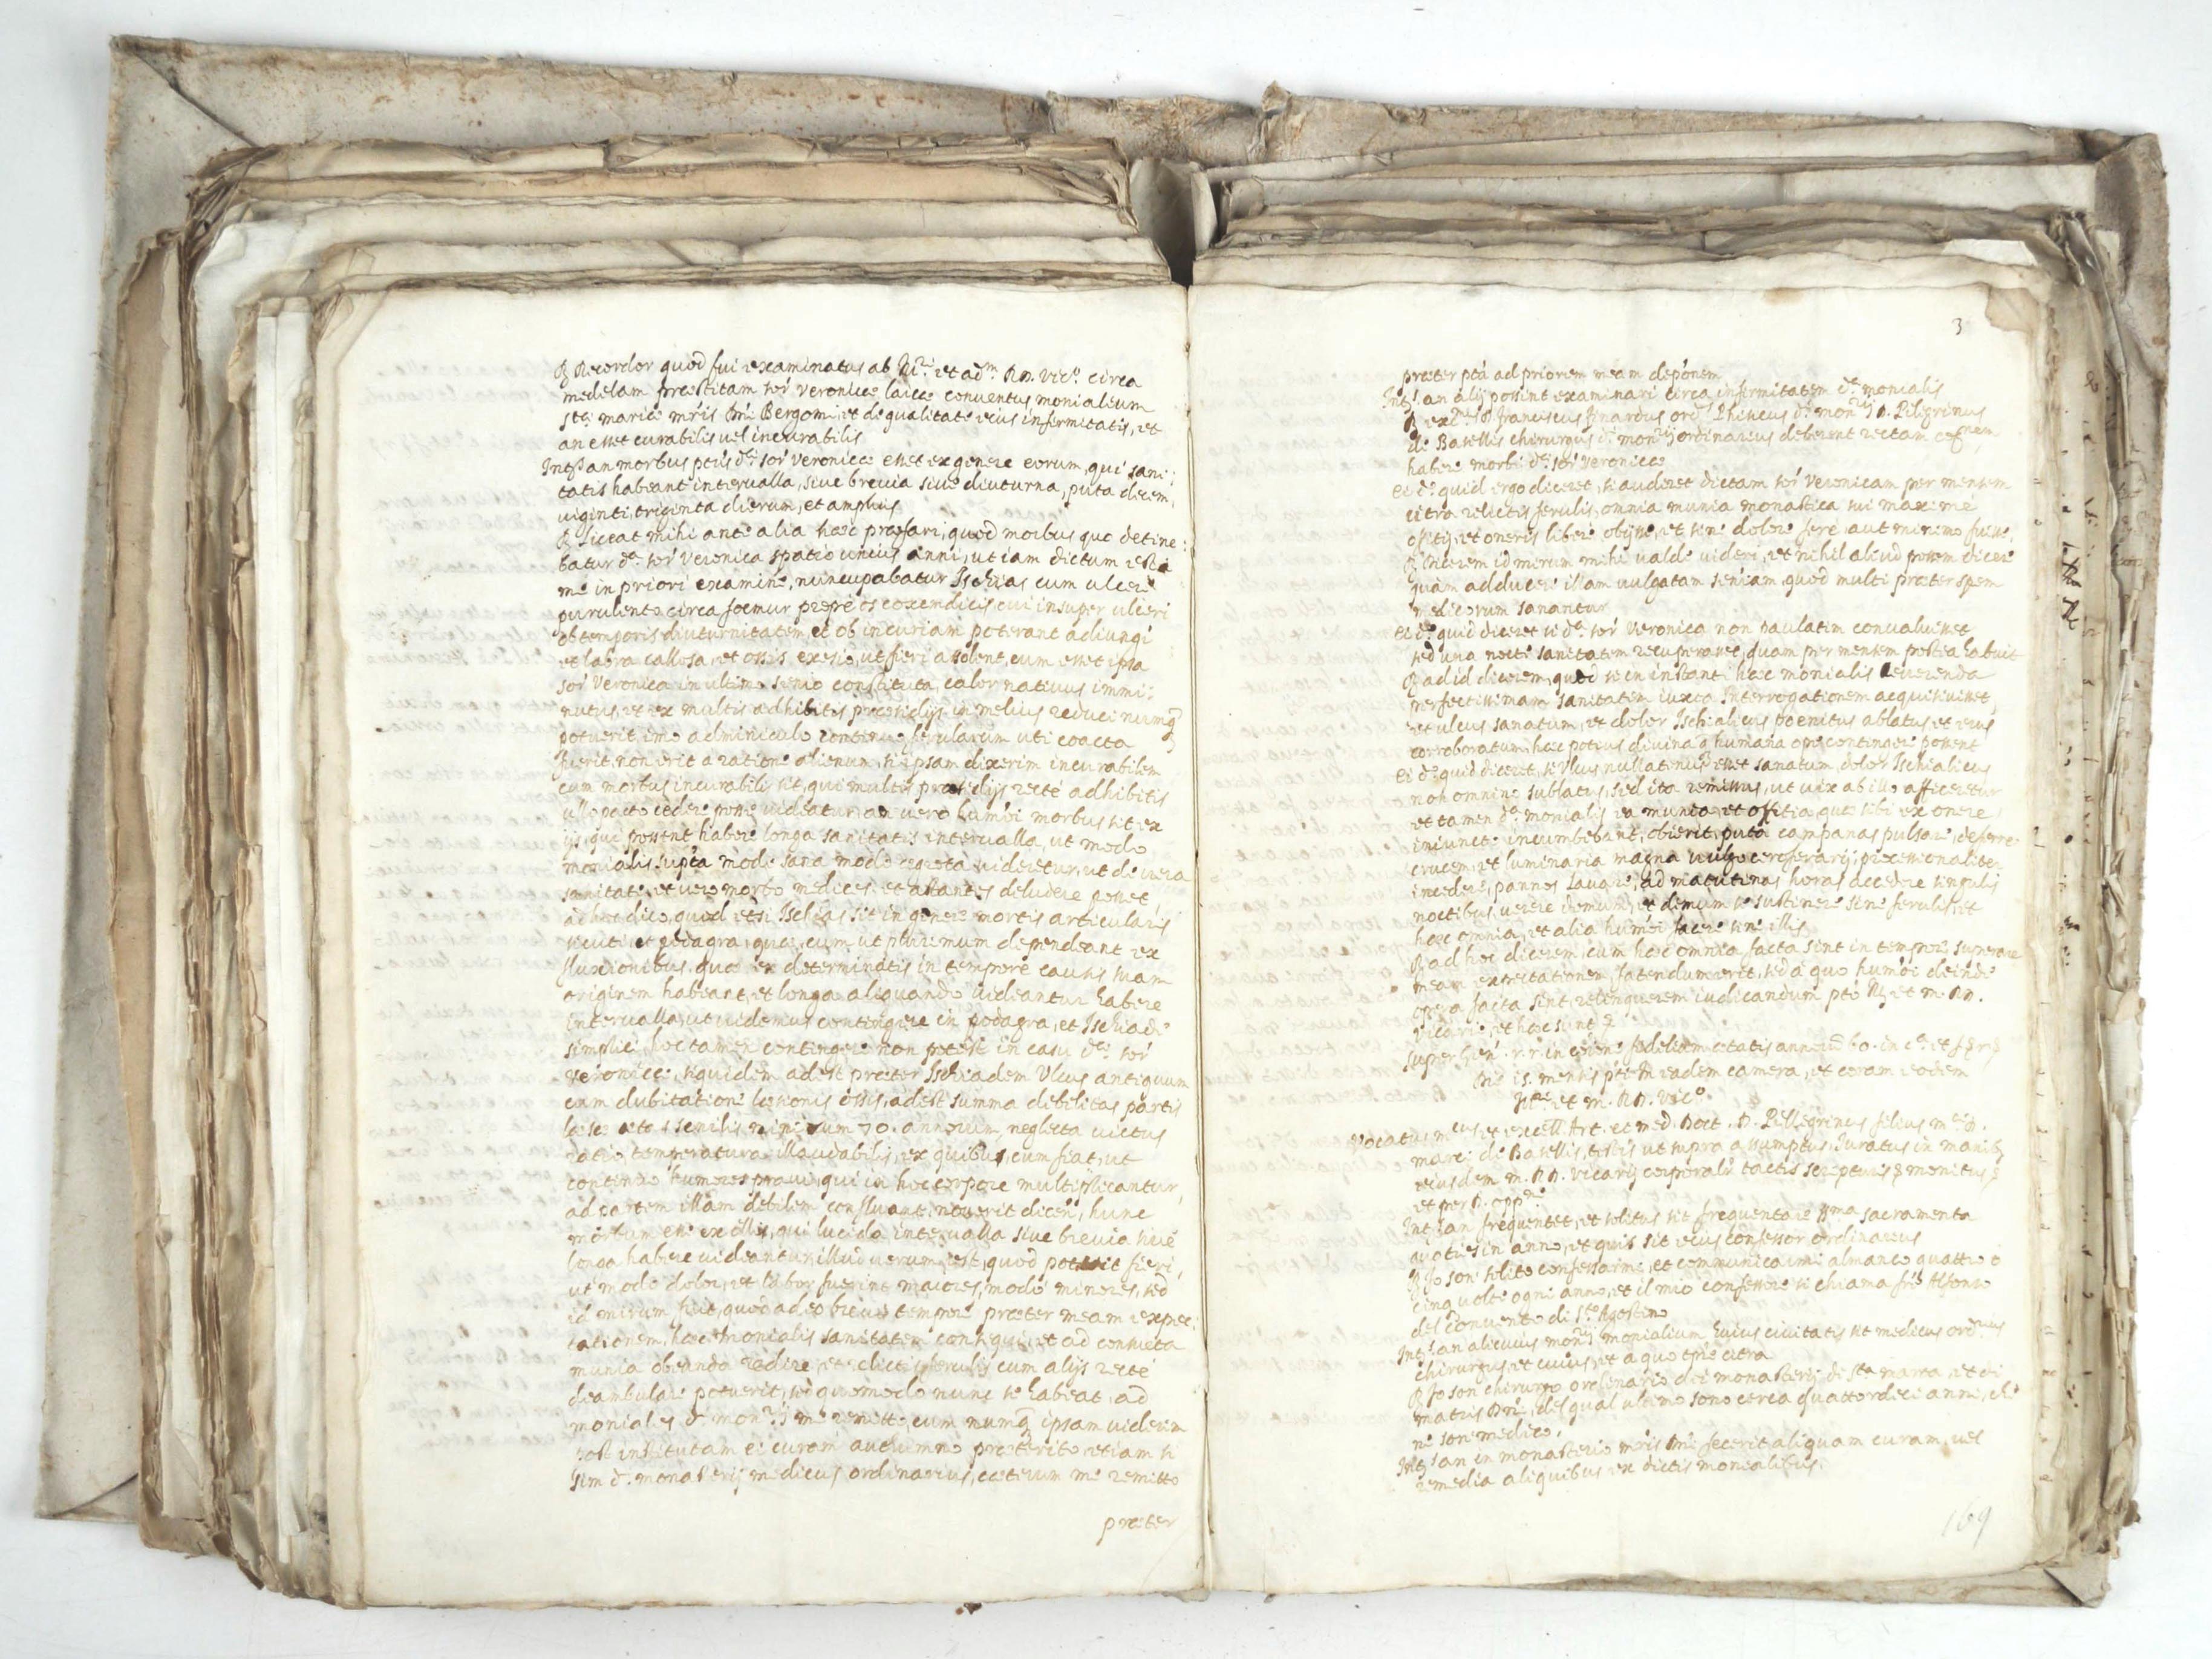 R Recordor quod fui examinatus ab Ill.ri et adm. RD. Vic.o circa
medelam præstitam sor Veronicæ laicæ conventus monialium
S.tæ Mariæ mris Dni Bergomi, et de qualitate eius infirmitatis, et
an esset curabilis vel incurabilis
Int.s an morbus ptus d.æ sor Veronicæ esset ex genere eorum, qui sani-
tatis habeant intervalla, sive brevia sive diuturna, puta decem,
viginti, triginta dierum, et amplius
R Liceat mihi ante alia hæc præfari, quod morbus quo detine-
batur d.a sor Veronica spatio unius anni, ut iam dictum est a
me in priori examine, nuncupabatur Ischias cum ulcere
purulento circa foemur prope os coxendicis, cui insuper ulceri
ob temporis diuturnitatem, et ob incuriam poterant adiungi
et labra callosa, et ossis exesio, ut fieri assolent, cum esset ipsa
sor Veronica in ultimo senio constituta, calor nativus immi-
nutus, et ex multis adhibitis præsidijs in melius reduci numq
potuerit, imo adminiculo continuo ferularum uti coacta
fuerit, non erit a ratione alienum, si ipsam dixerim incurabilem
cum morbus incurabilis sit, qui multis præsidijs recte adhibitis
ullo pacto cedere posse videatur, an vero humoi morbus sit ex
ijs, qui possent habere longa sanitatis intervalla, ut modo
monialis supta modo sana modo egrota videretur, ut de vera
sanitate, et vero morbo medicos, et astantes deludere posset,
ad hoc dico, quod etsi Ischias sit in genere morbis articularis
sicuti et podagra, quæ, cum ut plurimum dependeant ex
fluxionibus, quæ ex determinatis in tempore causis suam
originem habeant, et longa aliquando videantur habere
intervalla, ut videmus contingere in podagra, et Ischiade
simplici, hoc tamen contingere non potest in casu d.æ sor
Veronicæ, siquidem adest præter Ischiadem Ulcus antiquum
cum dubitatione læsionis ossis, adest summa debilitas partis
læsæ ætas senilis nimirum 70. annorum, neglecta victus
ratio, temperatura illaudabilis, ex quibus, cum fiat, ut
continuo humores pravi, qui in hoc corpore multiplicantur,
ad partem illam debilem confluant, non erit dicen, hunc
morbum esse ex illis, qui lucida intervalla sive brevia sive
longa habere videantur, illud verum est, quod potuit fieri,
ut modo dolor, et labor fuerint maiores, modo minores, sed
id mirum fuit, quod adeo brevi tempore præter meam expec-
tationem, hæc monialis sanitatem consequi, et ad consueta
munia obeunda redire, et relictis ferulis cum alijs recte
deambulare potuerit, sed quomodo nunc se habeat, ad
moniales d. mon.rij me remitto, cum numq ipsam viderim
post institutam ei curam autumno præterito, etiam si
sim d. monasterij medicus ordinarius, cæterum me remitto
præter
3
præter pta ad priorem meam depónem
Int.s an alij possint examinari circa infirmitatem d.æ monialis
R ex.us D. Franciscus Zinardus ord.s Phisicus d. mon.rij D. Piligrinus
de Basellis chirurgus d. mon.rij ordinarius deberent rectam cog.nem
habere morbi d.æ sor Veronicæ
Ei d. quid ergo diceret, si audiret dictam sor Veronicam per mensem
citra relictis ferulis, omnia munia monastica sui maxime
offitij, et oneris libere obijsse, et sine dolore fere, aut minimo fuisse,
R Dicerem id mirum mihi valde videri, et nihil aliud possem dicere
quam adducere illam vulgatam sentiam, quod multi præter spem
medicorum sanantur
Ei d. quid diceret si d.a sor Veronica non paulatim convaluisset
sed una nocte sanitatem recuperavet, quam per mensem postea habuit
R ad id dicerem, quod si in instanti hæc monialis Reverenda
perfectissimam sanitatem iuxta Interrogationem acquisivisset,
et ulcus sanatum, et dolor Ischialicus poenitus ablatus, et crus
corroboratum, hæc potius divina q humana ope contingere possent
Ei d. quid diceret, si Ulcus nullatenus esset sanatum, dolor Ischialicus
non omnino sublatus, sed ita remissus, ut vix ab illo afficeretur
et tamen d.a monialis ea munia, et offitia, quæ sibi ex onere
iniuncto incumbebant, obierit, puta campanas pulsare, deferre
crucem, et luminaria magna vulgo cereferarij, processionaliter
incedere, pannos lavare, ad matutinas horas accedere singulis
noctibus, verrere domum, et demum se sustinere sine ferulis, et
hæc omnia, et alia humoi facere sine illis
R ad hoc dicerem, cum hæc omnia facta sint in tempore, superare
meam exspectationem fatendum erit, sed a quo humoi deinde
opera facta sint, relinquerem iudicandum pto Ill. et m. RD.
Vicario, et hæc sunt &
Super gen. r. r. in coione fidelium ætatis annorum 60. in c.a et s
Die 15. mensis pti in eadem camera, et coram eodem
Ill.ri et m. RD. Vic.o
Vocatus m.cus et excell. Art. et med. Doct. D. Pellegrinus filius m.ci D.
Marci de Basellis, testis ut supra assumptus, Iuratus in manib
eiusdem m. RD. Vicarij corporalr tactis scripturis & monitus &
et per D. opp.ne
Int.s an frequentet, et solitus sit frequentare ss.ma sacramenta
quoties in anno, et quis sit eius confessor ordinarius
R Jo son solito confessarmi, et communicarmi almanco quattro o
cinq volte ogni anno, et il mio confessore si chiama frà Alfonso
del convento di S.to Agostino
Int.s an alicuius mon.rij monialium huius civitatis sit medicus ord.rius
chirurgus, et cuius, et a quo tpre citra
R Jo son chirurgo ordinario dei monasterij di S.ta Marta, et di
Matris Dni, del qual ultimo sono circa quattordeci anni, che
ne son medico,
Int.s an in monasterio mris Dni fecerit aliquam curam, vel
remedia aliquibus ex dictis monialibus.
169